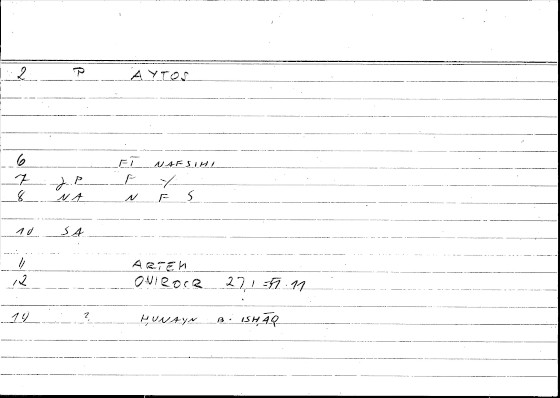 2 P AYTOS
6 FĪ NAFSIHI
7 P F Y
8 NA N F S
10 SA
11 ARTEM
12 ONIROCR 27,1
14 ? ḤUNAYN B. ISḤĀQ